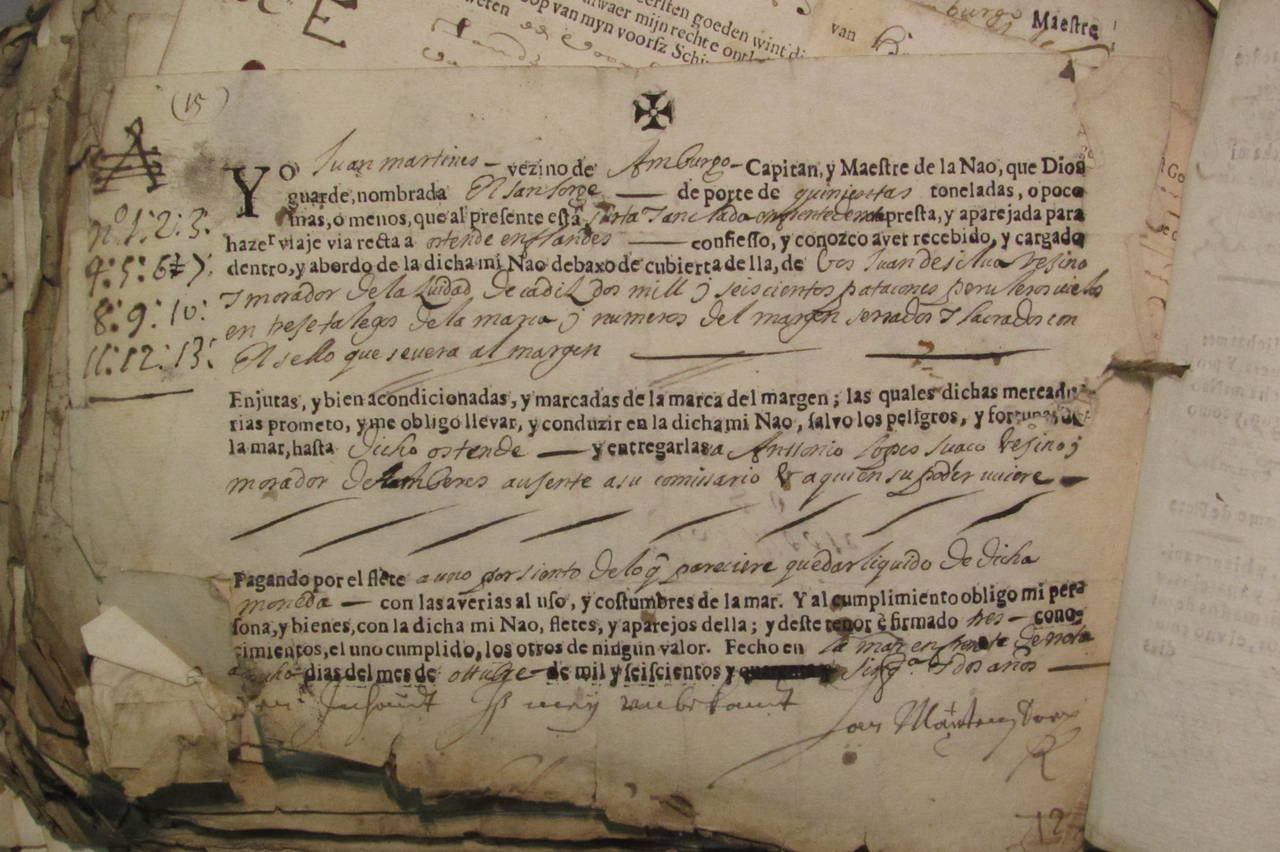 eersten goeden wint di
waer mijn rechte ontl
weten
op van myn voorsz Schi
van
Maestre
(15)
Yo Juan martines – vezino de Amburgo – Capitan, y Maestre de la Nao, que Dios
guarde, nombrada El san Jorge — de porte de quinientas toneladas, o poco
mas, o menos, que al presente està surta y anclado presta, y aparejada para
hazer viaje via recta a ostende en flandes — confiesso, y conozco aver recebido, y cargado
nº 1: 2: 3:
4: 5: 6: 7:
8: 9: 10:
11: 12: 13:
dentro, y abordo de la dicha mi Nao debaxo de cubierta della, de Vos Juan de silva vesino
y morador de la ziudad de cadiz dos mill y seiscientos patacones peruleros
en trese talegos de la marca y numeros del margen serrados y lacrados con
El sello que se vera al margen
Enjutas, y bien acondicionadas, y marcadas de la marca del margen; las quales dichas mercadu-
rias prometo, y me obligo llevar, y conduzir en la dicha mi Nao, salvo los peligros, y fortunas de
la mar, hasta dicho ostende — y entregarlas a Anttonio Lopes Suaco Vesino y
morador de Amberes ausente a su comissario & a quien su poder uviere —
Pagando por el flete a uno por siento de lo q pareciere quedar liquido de dicha
moneda — con las averias al uso, y costumbres de la mar. Y al cumplimiento obligo mi per-
sona, y bienes, con la dicha mi Nao, fletes, y aparejos della; y deste tenor è firmado tres – cono-
cimientos, el uno cumplido, los otros de ningun valor. Fecho en la mar en frente de rota
dias del mes de ottubre – de mil y seiscientos y sinqta y dos años —
Inhoudt is mey unbekandt
Jan Martens
12